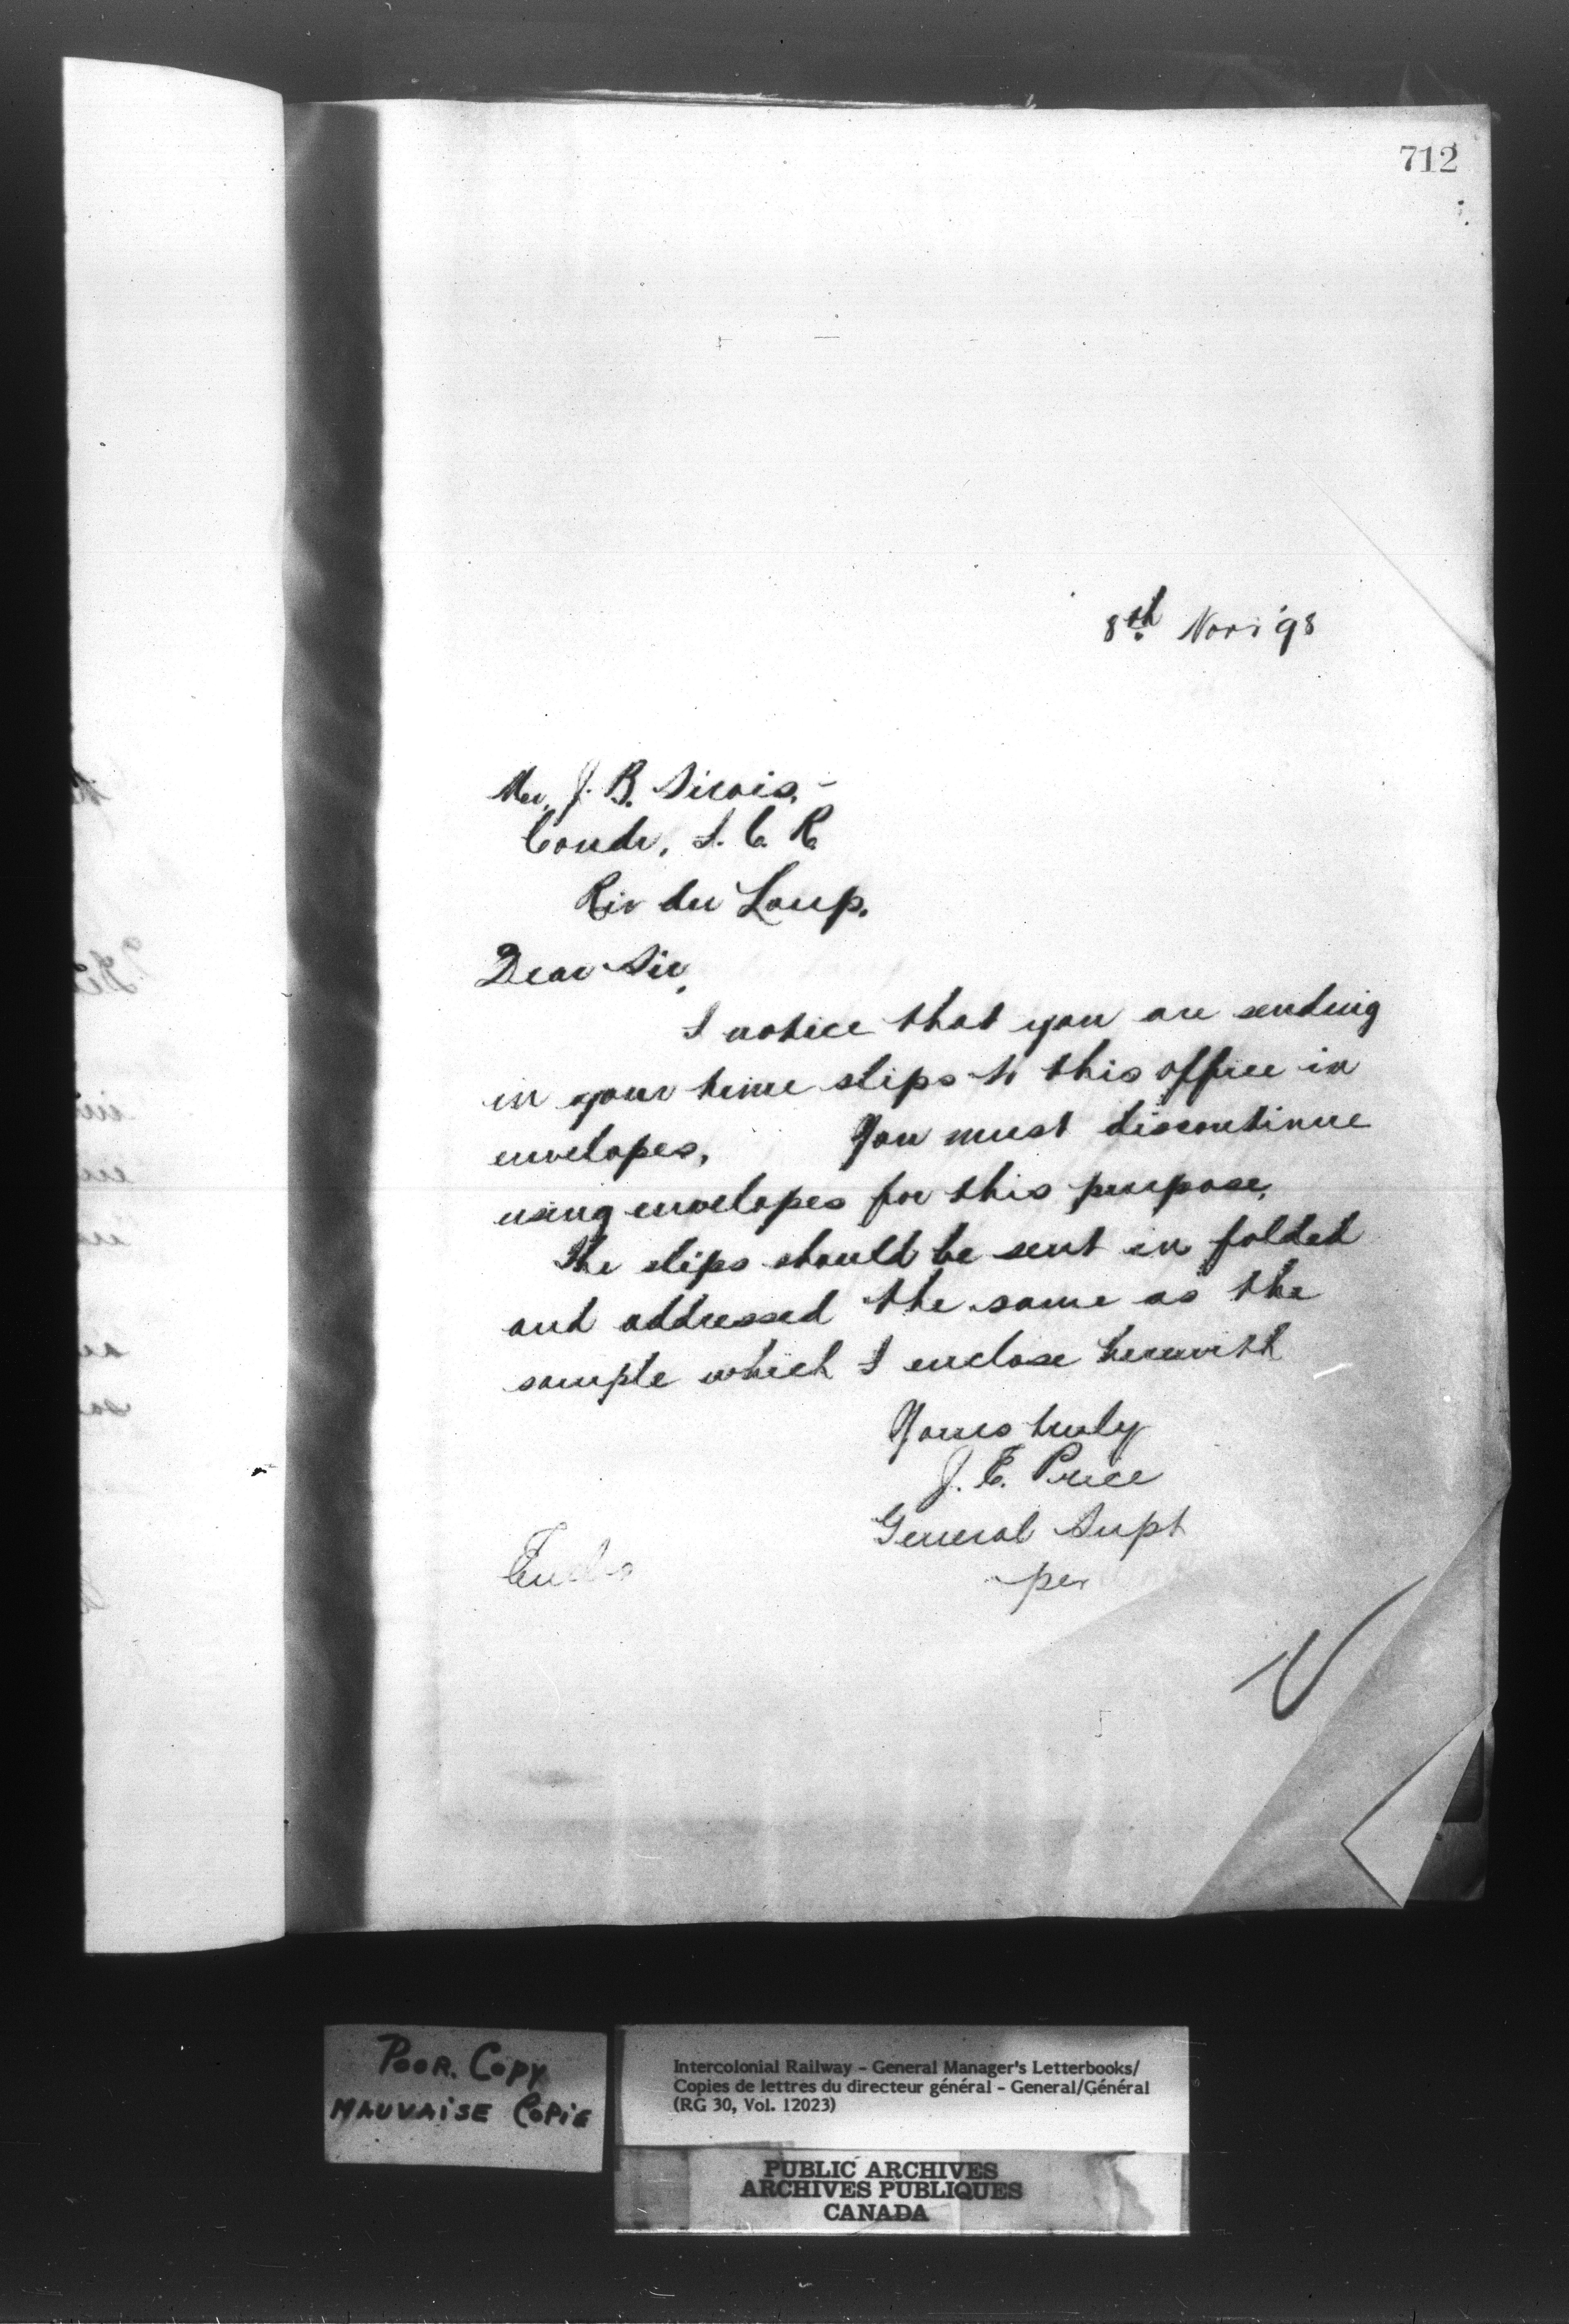 712
8th Nov '98
Mr. J. B. Sirois,-
Condr, I. C. R.
Riv du Loup.
Dear Sir,
I notice that you are sending
in your time slips to this office in
envelopes. You must discontinue
using envelopes for this purpose.
The slips should be sent in folded
and addressed the same as the
sample which I enclose herewith
Yours truly
J. E. Price
General Supt
per
Enclo
POOR. COPY
MAUVAISE COPIE
Intercolonial Railway - General Manager's Letterbooks/
Copies de lettres du directeur général - General/Général
(RG 30, Vol. 12023)
PUBLIC ARCHIVES
ARCHIVES PUBLIQUES
CANADA